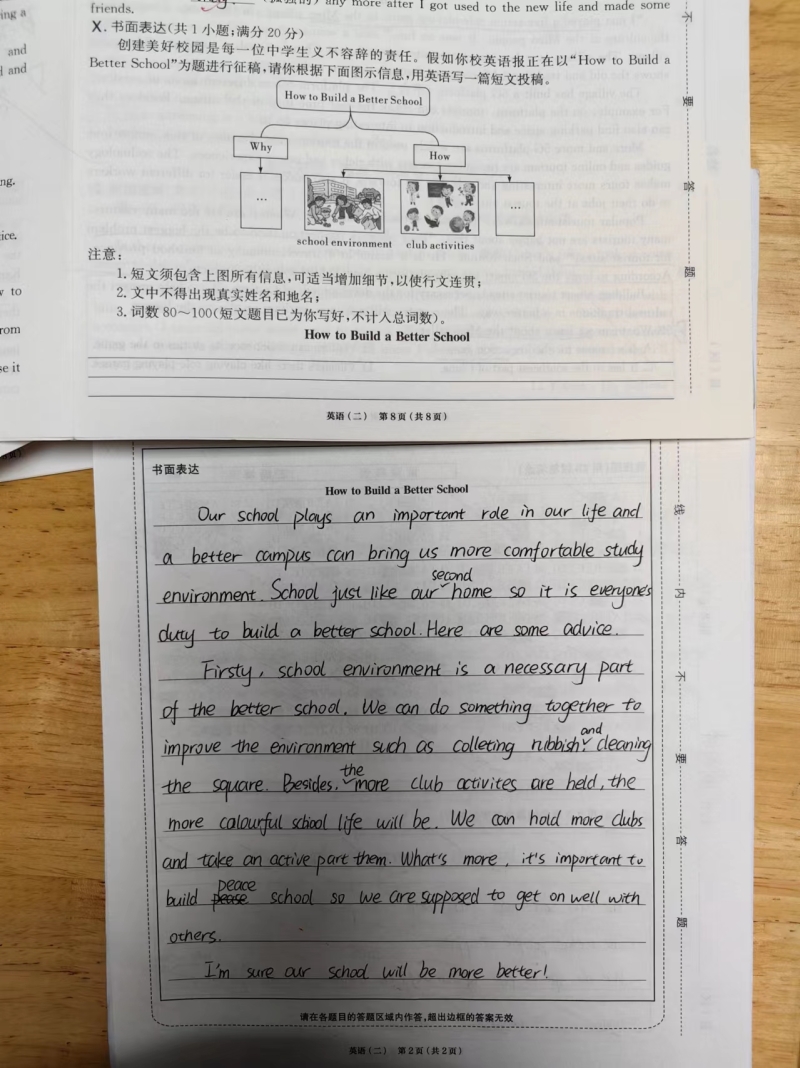 ing a
and
d and
ng.
ice.
v to
rom
se it
any more after I got used to the new life and made some
friends.
X. 书面表达(共1小题;满分20分)
创建美好校园是每一位中学生义不容辞的责任。假如你校英语报正在以“How to Build a
Better School”为题进行征稿,请你根据下面图示信息,用英语写一篇短文投稿。
How to Build a Better School
Why
How
...
...
school environment club activities
注意:
1. 短文须包含上图所有信息,可适当增加细节,以使行文连贯;
2. 文中不得出现真实姓名和地名;
3. 词数 80~100(短文题目已为你写好,不计入总词数)。
How to Build a Better School
英语(二) 第8页(共8页)
不
要
答
题
书面表达
How to Build a Better School
Our school plays an important role in our life and
a better campus can bring us more comfortable study
environment. School just like our second home so it is everyone's
duty to build a better school. Here are some advice.
Firsty, school environment is a necessary part
of the better school. We can do something together to
improve the environment such as colleting rubbish and cleaning
the square. Besides, the more club activites are held, the
more calourful school life will be. We can hold more clubs
and take an active part them. What's more, it's important to
build peace school so we are supposed to get on well with
others.
I'm sure our school will be more better!
请在各题目的答题区域内作答,超出边框的答案无效
英语(二) 第2页(共2页)
线
内
不
要
答
题